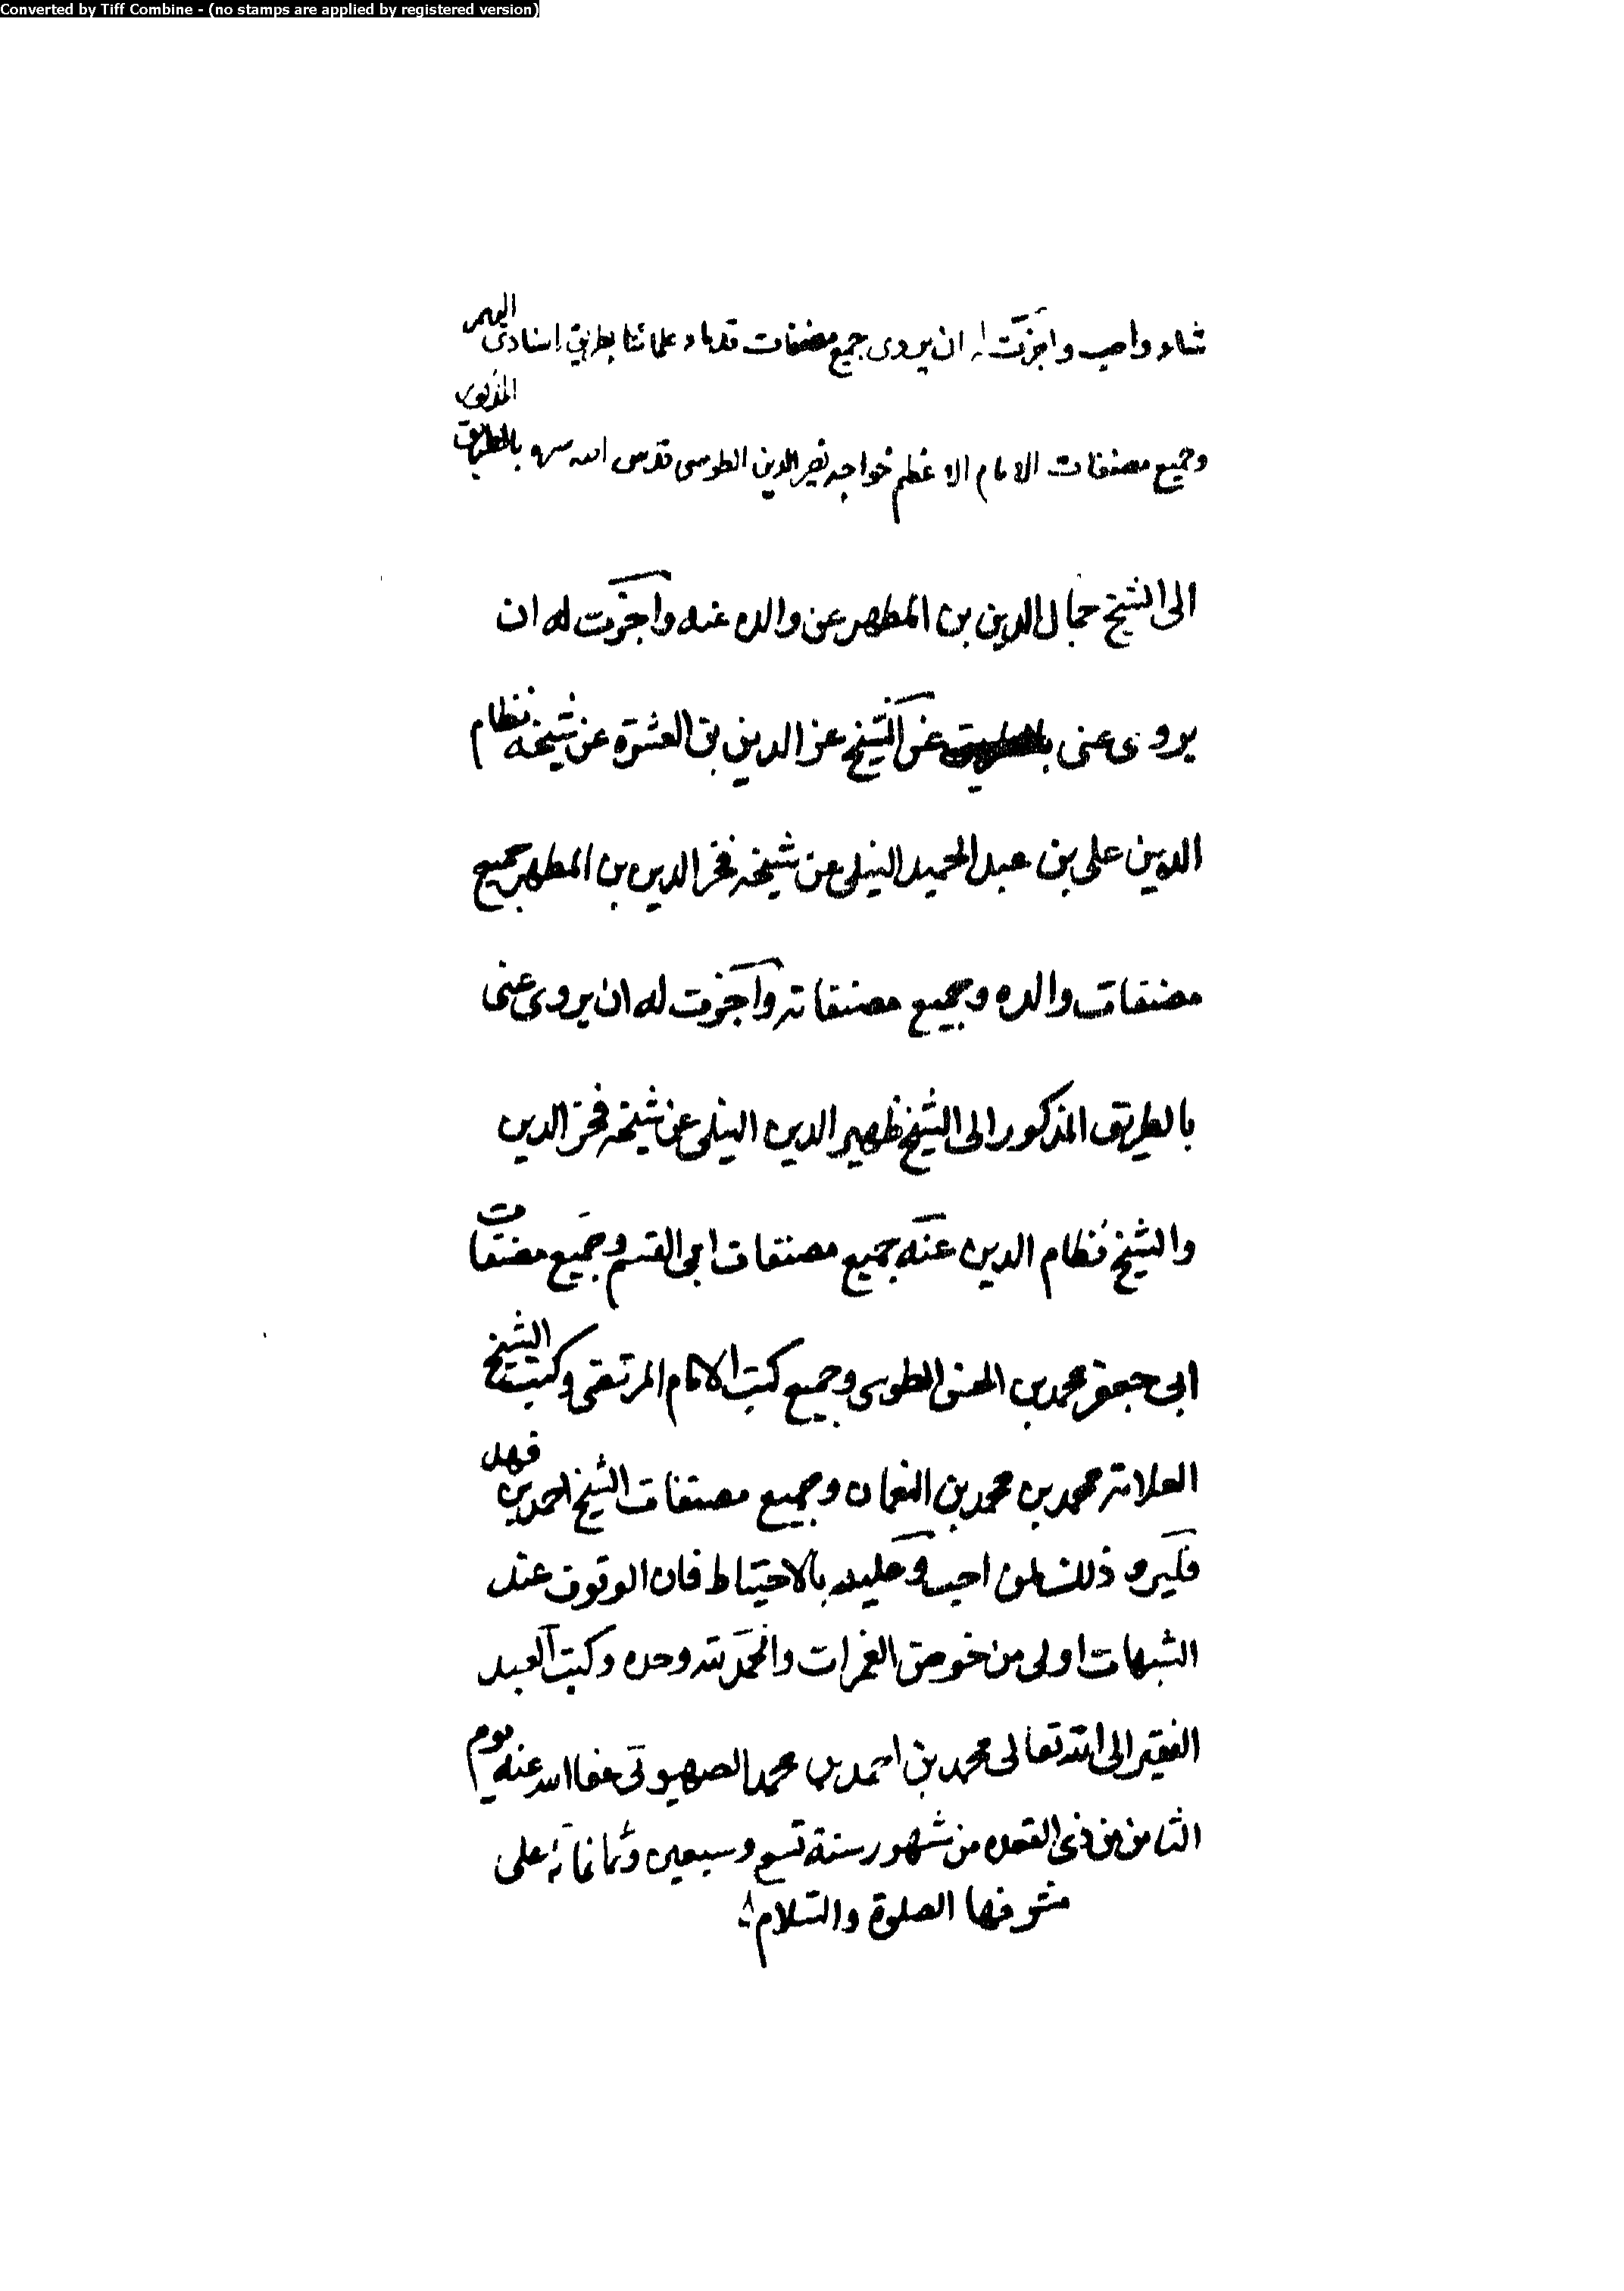 Converted by Tiff Combine - (no stamps are applied by registered version)
شاء واحب واجزت له ان يروى جميع مصنفات قدماء علمائنا بطريق اسنادى اليهم
وجميع مصنفات الامام الاعظم خواجه نصير الدين الطوسى قدس الله سره بالطريق المذكور
الى الشيخ جمال الدين بن المطهر عن والده عنه واجزت له ان
يروى عنى عن الشيخ عز الدين بن العشرة عن شيخه نظام
الدين على بن عبد الحميد النيلى عن شيخه فخر الدين بن المطهر جميع
مصنفات والده وجميع مصنفاته واجزت له ان يروى عنى
بالطريق المذكور الى الشيخ ظهير الدين النيلى عن شيخه فخر الدين
والشيخ نظام الدين عنه جميع مصنفات ابى القسم وجميع مصنفات
ابى جعفر محمد بن الحسن الطوسى وجميع كتب الامام المرتضى وكتب الشيخ
العلامة محمد بن محمد بن النعمان وجميع مصنفات الشيخ احمد بن فهد
فليرو ذلك لمن احب وعليه بالاحتياط فان الوقوف عند
الشبهات اولى من خوض الغمرات والحمد لله وحده وكتب العبد
الفقير الى الله تعالى محمد بن احمد بن محمد الصهيونى عفا الله عنه يوم
الثامن من ذى القعده من شهور سنة تسع وسبعين وثمانمائة على
مشرفها الصلوة والسلام